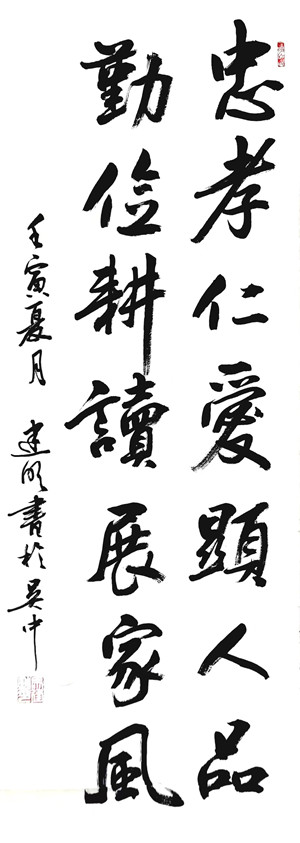 忠孝仁愛顯人品
勤儉耕讀展家風
壬寅夏月 建明書於吴中